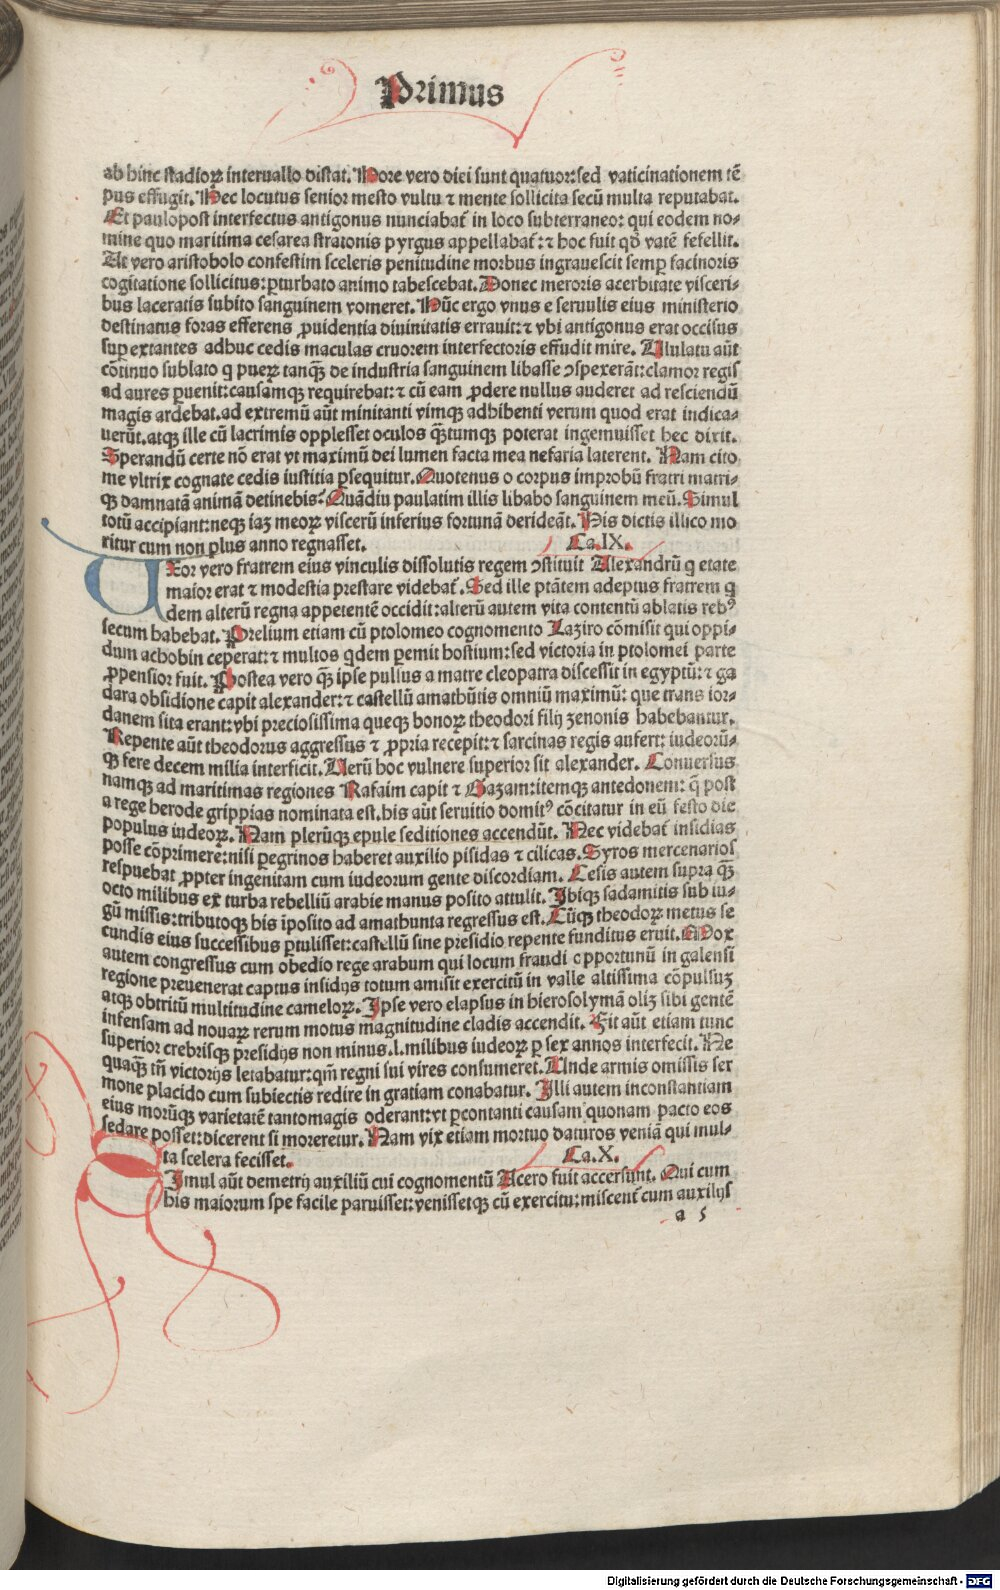 Primus
ab hinc stadioꝝ interuallo distat. Hore vero diei sunt quatuor: sed vaticinationem tē
pus effugit. Hec locutus senior mesto vultu ⁊ mente sollicita secū multa reputabat.
Et paulopost interfectus antigonus nunciabat̄ in loco subterraneo: qui eodem no-
mine quo maritima cesarea stratonis pyrgus appellabat̄: ⁊ hoc fuit qđ vatē fefellit.
At vero aristobolo confestim sceleris penitudine morbus ingrauescit semꝑ facinoris
cogitatione sollicitus: ꝑturbato animo tabescebat. Donec meroris acerbitate visceri-
bus laceratis subito sanguinem vomeret. Hūc ergo vnus e seruulis eius ministerio
destinatus foras efferens ꝓuidentia diuinitatis errauit: ⁊ vbi antigonus erat occisus
suꝑextantes adhuc cedis maculas cruorem interfectoris effudit mire. Ululatu aūt
cōtinuo sublato q̇ pueꝝ tanq̄ꝫ de industria sanguinem libasse ↄspexerāt: clamor regis
ad aures ꝑuenit: causamqꝫ requirebat: ⁊ cū eam ꝓdere nullus auderet ad resciendū
magis ardebat. ad extremū aūt minitanti vimqꝫ adhibenti verum quod erat indica-
uerūt. atqꝫ ille cū lacrimis opplesset oculos q̄ꝫtumqꝫ poterat ingemuisset hec dixit.
Sperandū certe nō erat vt maximū dei lumen facta mea nefaria laterent. Nam cito
me vltrix cognate cedis iustitia ꝑsequitur. Quotenus o corpus improbū fratri matri-
qꝫ damnatā animā detinebis? Quādiu paulatim illis libabo sanguinem meū. Simul
totū accipiant: neqꝫ iaꝫ meoꝝ viscerū inferius fortunā derideāt. His dictis illico mo
ritur cum non plus anno regnasset. Ca.IX.
Uxor vero fratrem eius vinculis dissolutis regem ↄstituit Alexandrū q̇ etate
maior erat ⁊ modestia prestare videbat̄. Sed ille ptātem adeptus fratrem q̇
dem alterū regna appetentē occidit: alterū autem vita contentū ablatis rebꝰ
secum habebat. Prelium etiam cū ptolomeo cognomento Laziro cōmisit qui oppi-
dum achobin ceperat: ⁊ multos q̇dem ꝑemit hostium: sed victoria in ptolomei parte
ꝓpensior fuit. Postea vero q̄ꝫ ipse pulsus a matre cleopatra discessit in egyptū: ⁊ ga
dara obsidione capit alexander: ⁊ castellū amathūtis omniū maximū: que trans ior-
danem sita erant: vbi preciosissima queqꝫ bonoꝝ theodori filij zenonis habebantur.
Repente aūt theodorus aggressus ⁊ ꝓpria recepit: ⁊ sarcinas regis aufert: iudeorū-
qꝫ fere decem milia interficit. Uerū hoc vulnere superior sit alexander. Conuersus
namqꝫ ad maritimas regiones Rafaim capit ⁊ Gazam: itemqꝫ antedonem: q̄ post
a rege herode grippias nominata est. his aūt seruitio domitꝰ cōcitatur in eū festo die
populus iudeoꝝ. Nam plerūqꝫ epule seditiones accendūt. Nec videbat̄ insidias
posse cōprimere: nisi ꝑegrinos haberet auxilio pisidas ⁊ cilicas. Syros mercenarios
respuebat ꝓpter ingenitam cum iudeorum gente discordiam. Cesis autem supra q̄ꝫ
octo milibus ex turba rebelliū arabie manus posito attulit. Ibiqꝫ sadamitis sub iu-
gū missis: tributoqꝫ his īposito ad amathunta regressus est. Cūqꝫ theodoꝝ metus se
cundis eius successibus ꝑtulisset: castellū sine presidio repente funditus eruit. Mox
autem congressus cum obedio rege arabum qui locum fraudi opportunū in galensi
regione preuenerat captus insidijs totum amisit exercitū in valle altissima cōpulsuꝫ
atqꝫ obtritū multitudine cameloꝝ. Ipse vero elapsus in hierosolymā oliꝫ sibi gentē
infensam ad nouaꝝ rerum motus magnitudine cladis accendit. Fit aūt etiam tunc
superior crebrisqꝫ presidijs non minus .l. milibus iudeoꝝ ꝑ sex annos interfecit. Ne
quaq̄ꝫ tn̄ victorijs letabatur: qm̄ regni sui vires consumeret. Unde armis omissis ser
mone placido cum subiectis redire in gratiam conabatur. Illi autem inconstantiam
eius morūqꝫ varietatē tantomagis oderant: vt ꝑcontanti causam quonam pacto eos
sedare posset: dicerent si moreretur. Nam vix etiam mortuo daturos veniā qui mul-
ta scelera fecisset. Ca.X.
Simul aūt demetrij auxiliū cui cognomentū Acero fuit accersunt. Qui cum
his maiorum spe facile paruisset: venissetqꝫ cū exercitu: miscent̄ cum auxilijs
a 5
Digitalisierung gefördert durch die Deutsche Forschungsgemeinschaft - DFG